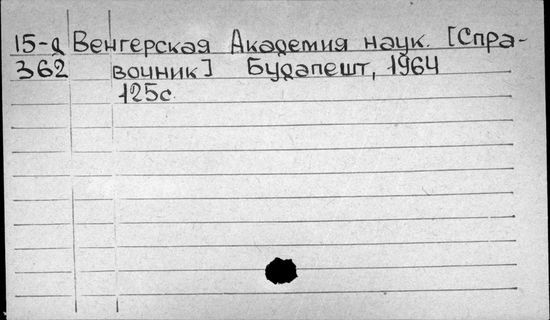 15-д Венгерская Академия наук. [Спра-
362 вочник] Будапешт, 1964
125с.